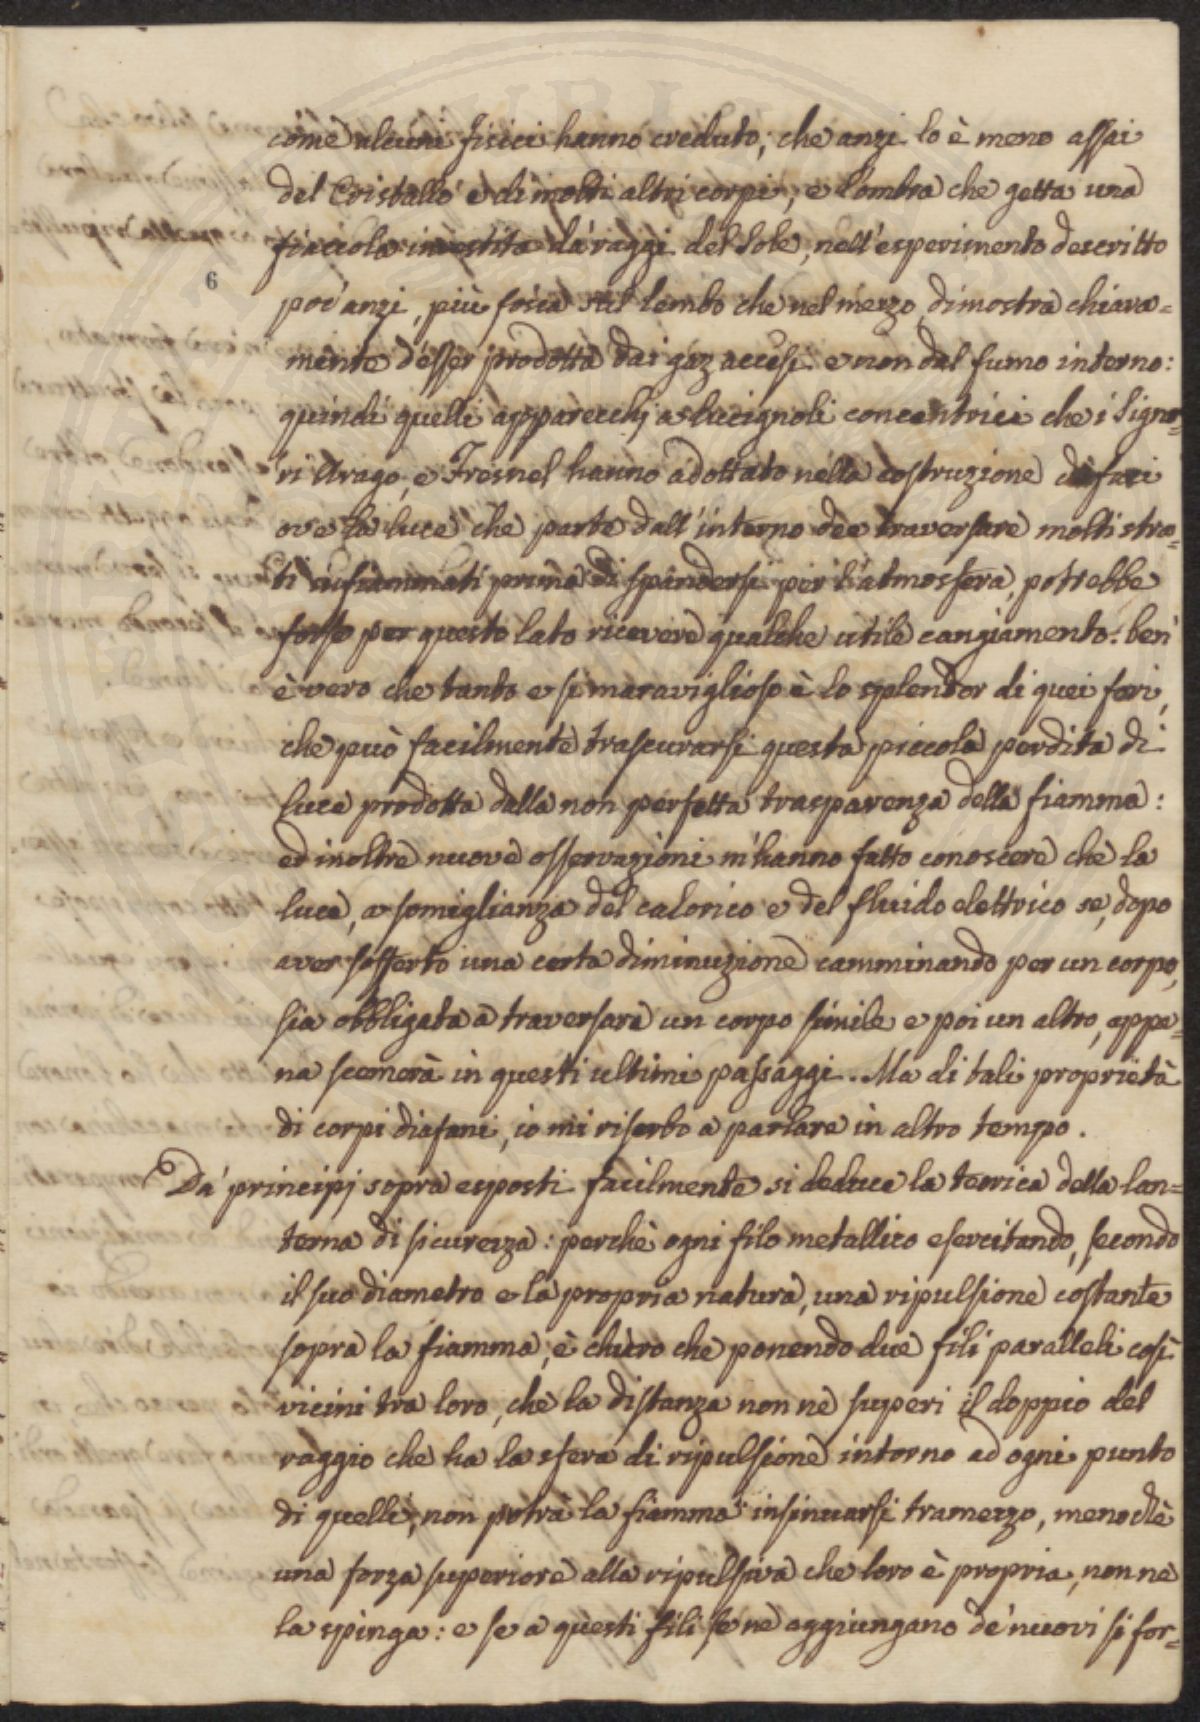 come alcuni fisici hanno creduto; che anzi lo è meno assai
del Cristallo e di molti altri corpi; e l'ombra che getta una
fiaccola investita da' raggi del Sole, nell'esperimento descritto
6
poc'anzi, più fosca sul lembo che nel mezzo dimostra chiara=
mente d'esser prodotta dai gaz accesi e non dal fumo interno:
quindi quelli apparecchj a lucignoli concentrici che i Signo=
ri Arago, e Fresnel hanno adottato nella costruzione de' fari
ove la luce che parte dall'interno dee traversare molti stra=
ti infiammati prima di spandersi per l'atmosfera, potrebbe
forse per questo lato ricevere qualche utile cangiamento: ben'
è vero che tanto e sì maraviglioso è lo splendor di quei fari,
che può facilmente trascurarsi questa piccola perdita di
luce prodotta dalla non perfetta trasparenza della fiamma:
ed inoltre nuove osservazioni m'hanno fatto conoscere che la
luce, a somiglianza del calorico e del fluido elettrico se, dopo
aver sofferto una certa diminuzione camminando per un corpo,
sia obbligata a traversare un corpo simile e poi un altro, appe=
na scemerà in questi ultimi passaggi.. Ma di tali proprietà
di corpi diafani, io mi riserbo a parlare in altro tempo.
Da' principj sopra esposti facilmente si deduce la teorica della lan=
terna di sicurezza: perchè ogni filo metallico esercitando, secondo
il suo diametro e la propria natura, una ripulsione costante
sopra la fiamma, è chiaro che ponendo due fili paralleli così
vicini tra loro, che la distanza non ne superi il doppio del
raggio che ha la sfera di ripulsione intorno ad ogni punto
di quelli, non potrà la fiamma insinuarsi tramezzo, meno chè
una forza superiore alla ripulsiva che loro è propria, non ne
la spinga: e se a questi fili se ne aggiungano de' nuovi si for=